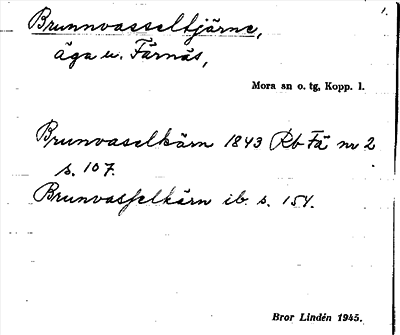 1.
Brunnvasseltjärne,
äga u. Färnäs,
Mora sn o. tg, Kopp. l.
Brunvaselkärn 1843 Rb Fä nr 2
s. 107.
Brunvasselkärn ib. s. 154.
Bror Lindén 1945.